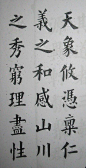 天象攸憑稟仁
義之和感山川
之秀窮理盡性